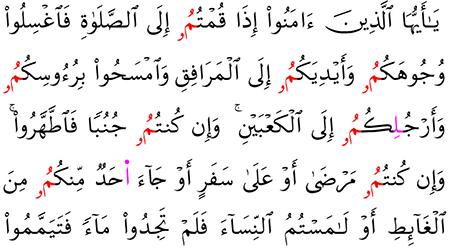 يَـٰٓأَيُّهَا ٱلَّذِينَ ءَامَنُوٓا۟ إِذَا قُمْتُمُۥٓ إِلَى ٱلصَّلَوٰةِ فَٱغْسِلُوا۟
وُجُوهَكُمُۥ وَأَيْدِيَكُمُۥٓ إِلَى ٱلْمَرَافِقِ وَٱمْسَحُوا۟ بِرُءُوسِكُمُۥ
وَأَرْجُلِكُمُۥٓ إِلَى ٱلْكَعْبَيْنِ ۚ وَإِن كُنتُمُۥ جُنُبًا فَٱطَّهَّرُوا۟ ۚ
وَإِن كُنتُمُۥ مَرْضَىٰٓ أَوْ عَلَىٰ سَفَرٍ أَوْ جَآءَ اَ۬حَدٌ مِّنكُمُۥ مِنَ
ٱلْغَآئِطِ أَوْ لَـٰمَسْتُمُ ٱلنِّسَآءَ فَلَمْ تَجِدُوا۟ مَآءً فَتَيَمَّمُوا۟